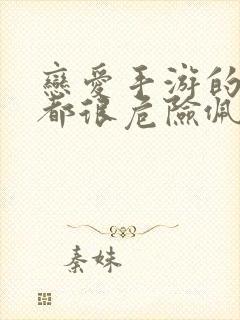 戀愛手游的
都很危險佩
秦妹